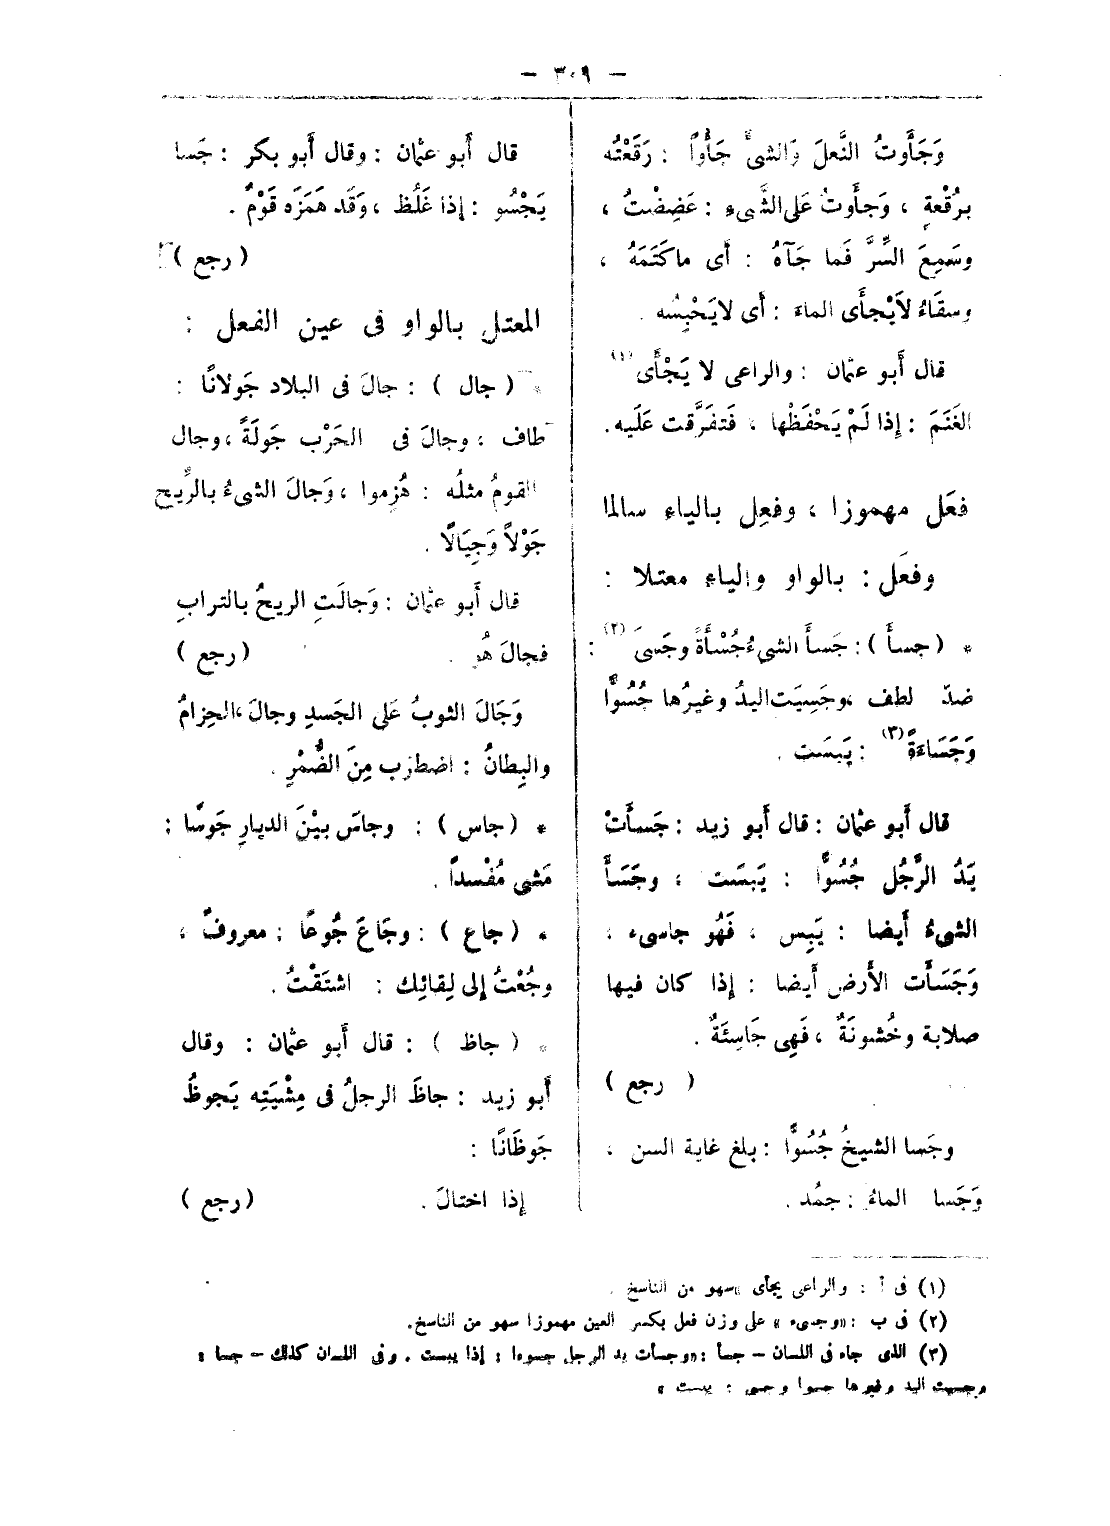 — ٣٠٩ —
وَجَأَوتُ النَّعلَ وَالشىْءَ جَأْواً : رَقَعْتُه
برُقْعةٍ ، وَجأَوتُ عَلى الشَّىءِ : عَضِضْتُ ،
وسَمِعَ السِّرَّ فَما جَآهُ : أَى ماكَتَمَهُ ،
وسقَاءُ لاَيْجأَى الماءَ : أَى لايَحْبِسُه .
قال أَبو عثمان : والراعى لا يَجْأَى (١)
الغَنَمَ : إِذا لَمْ يَحْفَظْها ، فَتفَرَّقت عَلَيه .
فعَل مهموزا ، وفعِل بالياء سالما
وفعَل : بالواو والياء معتلا :
* ( جسأ ) : جَسأَ الشىءُ جُسْأَةً وجَسىَ (٢) :
ضدّ لطف ، وجَسِيَت اليدُ وغيرُها جُسُوًّا
وَجَسَاءَةً (٣) : يَبسَت .
قال أَبو عثمان : قال أَبو زيد : جَسأَتْ
يَدُ الرَّجُل جُسُوًّا : يَبسَت ، وجَسَأَ
الشىءُ أَيضا : يَبِس ، فَهُو جاسىء ،
وَجَسَأَت الأَرض أَيضا : إِذا كان فيها
صلابة وخُشونَةٌ ، فَهِى جَاسِئَةٌ .
( رجع )
وجَسا الشيخُ جُسُوًّا : بلغ غاية السن ،
وَجَسا الماءُ : جمُد .
قال أَبو عثمان : وقال أَبو بكر : جَسا
يَجْسُو : إِذا غَلُظ ، وَقَد هَمَزَه قَوْمٌ .
( رجع )
المعتل بالواو فى عين الفعل :
* ( جال ) : جالَ فى البلاد جَولانًا :
طاف ، وجالَ فى الحَرْب جَولَةً ، وجال
القومُ مثلُه : هُزِموا ، وَجالَ الشىءُ بالرِّيح
جَوْلاً وَجِيَالًا .
قال أَبو عثمان : وَجالَتِ الريحُ بالترابِ
فجالَ هُو . ( رجع )
وَجَالَ الثوبُ عَلى الجَسدِ وجالَ ، الحِزامُ
والبِطانُ : اضطرَب مِنَ الضُّمْرِ .
* ( جاس ) : وجاسَ بيْنَ الديارِ جَوسًا :
مَشى مُفْسداً .
* ( جاع ) : وجَاعَ جُوعًا : معروفٌ ،
وجُعْتُ إِلى لِقائِك : اشتَقْتُ .
* ( جاظ ) : قال أَبو عثمان : وقال
أَبو زيد : جاظَ الرجلُ فى مِشْيَتِه يَجوظُ
جَوظَانًا :
إِذا اختالَ . ( رجع )
(١) فى أ : والراعى يجأى «سهو من الناسخ .
(٢) فى ب : «وجسىء» على وزن فعل بكسر العين مهموزا سهو من الناسخ.
(٣) الذى جاء فى اللسان – جسأ : «وجسأت يد الرجل جسوءا : إذا يبست . وفى اللسان كذلك – جسا :
وجسيت اليد وغيرها جسوا وجسى : يبست »